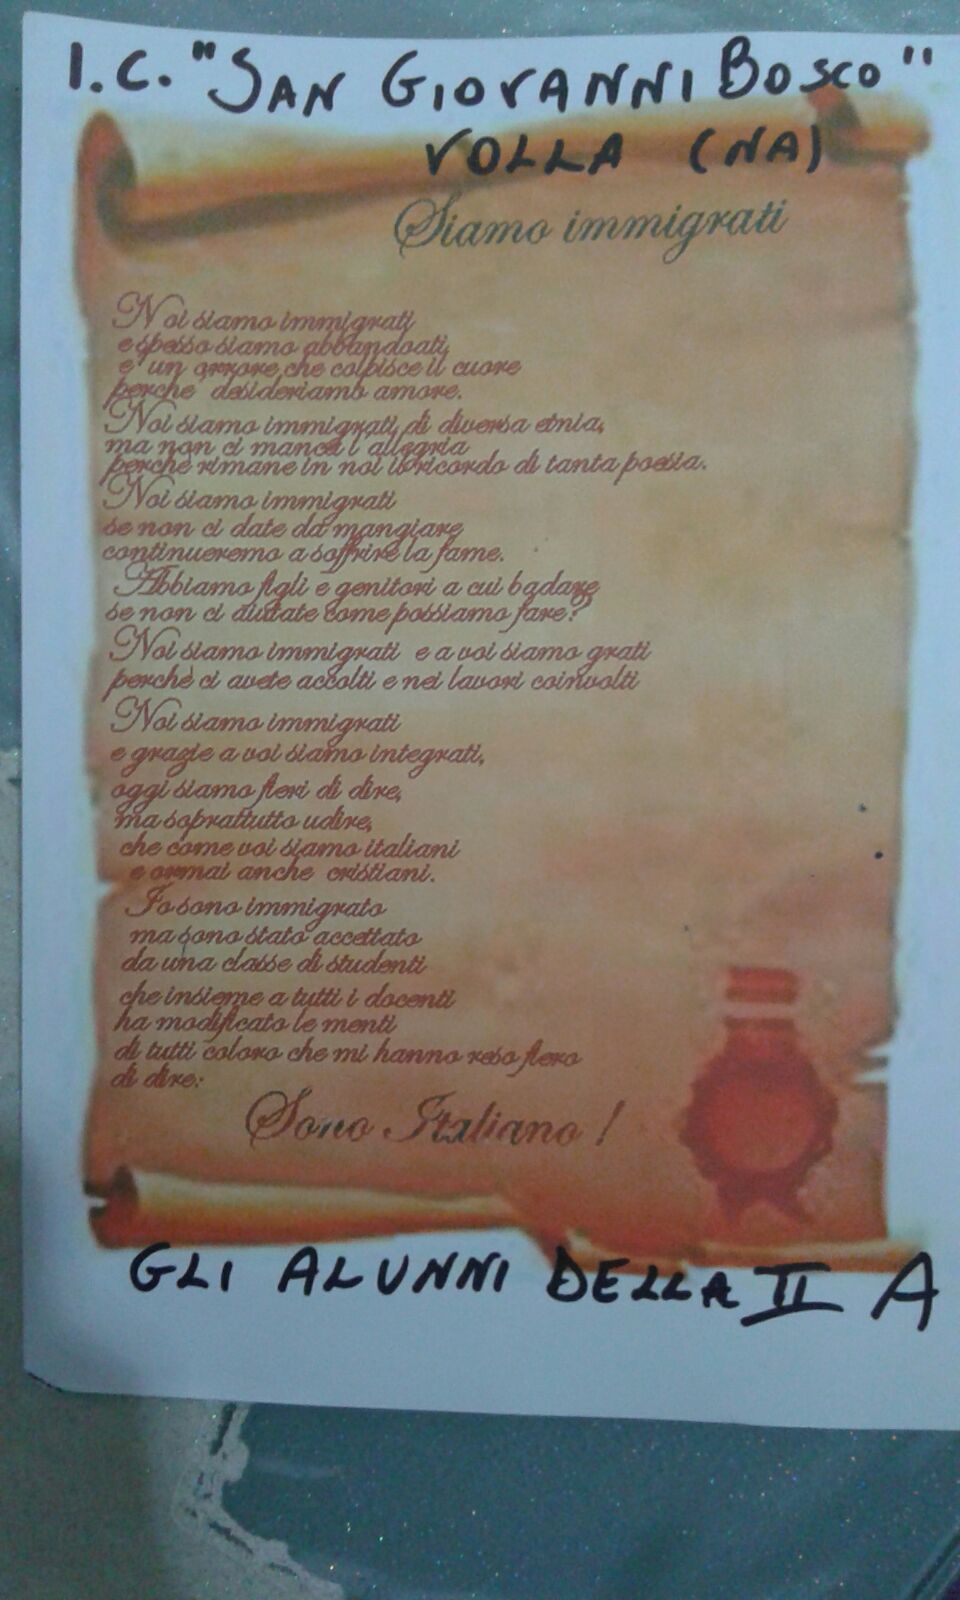 I.C. "SAN GIOVANNI BOSCO"
VOLLA (NA)
Siamo immigrati
Noi siamo immigrati
e spesso siamo abbandoati,
e' un orrore che colpisce il cuore
perche' desideriamo amore.
Noi siamo immigrati, di diversa etnia,
ma non ci manca l'allegria
perchè rimane in noi il ricordo di tanta poesia.
Noi siamo immigrati
se non ci date da mangiare
continueremo a soffrire la fame.
Abbiamo figli e genitori a cui badare
se non ci aiutate come possiamo fare?
Noi siamo immigrati e a voi siamo grati
perchè ci avete accolti e nei lavori coinvolti
Noi siamo immigrati
e grazie a voi siamo integrati,
oggi siamo fieri di dire,
ma soprattutto udire,
che come voi siamo italiani
e ormai anche cristiani.
Io sono immigrato
ma sono stato accettato
da una classe di studenti
che insieme a tutti i docenti
ha modificato le menti
di tutti coloro che mi hanno reso fiero
di dire:
Sono Italiano !
GLI ALUNNI DELLA II A